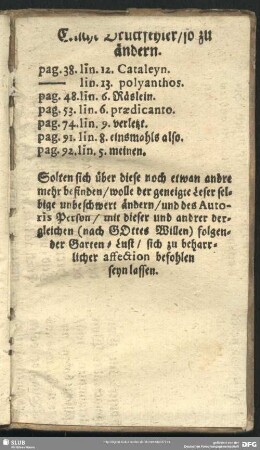 Etliche Druckfehler/so zu
ändern.
pag. 38. lin. 12. Cataleyn.
lin. 13. polyanthos.
pag. 48. lin. 6. Räslein.
pag. 53. lin. 6. prædicanto.
pag. 74. lin. 9. verletzt.
pag. 91. lin. 8. einsmohls also.
pag. 92. lin. 5. meinen.
Solten sich über diese noch etwan andre
mehr befinden/wolle der geneigte Leser sel-
bige unbeschwert ändern/und des Auto-
ris Person/ mit dieser und andrer der-
gleichen (nach GOttes Willen) folgen-
der Garten-Lust/ sich zu beharr-
licher affection befohlen
seyn lassen.
SLUB
DFG